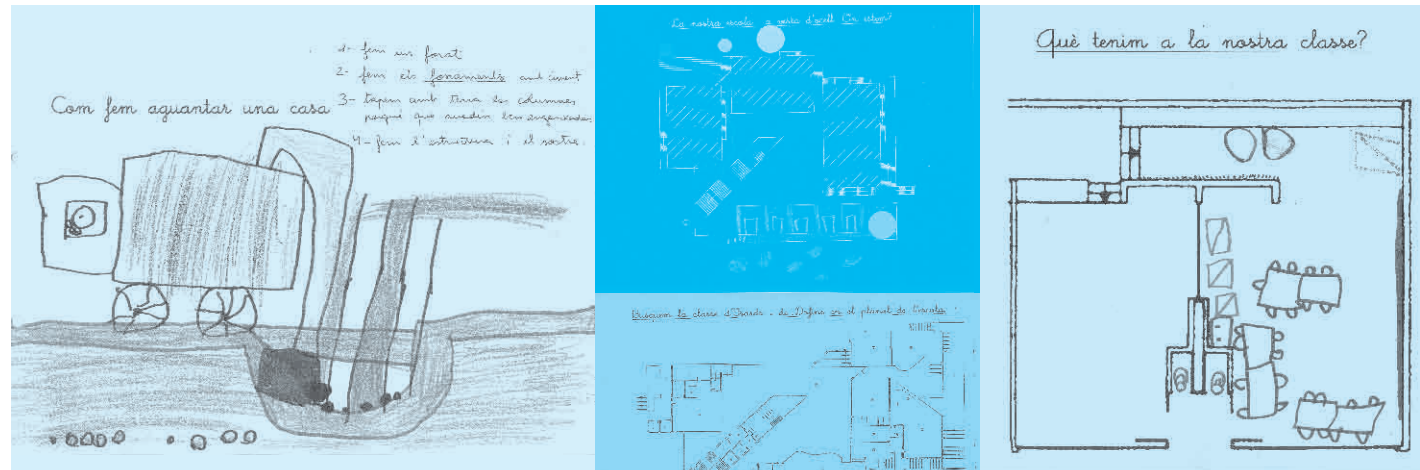 Com fem aguantar una casa
1- fem un forat
2- fem els fonaments amb ciment
3- tapem amb terra les columnes
perquè que quedin ben enganxades
4- fem l'estructura i el sostre.
La nostra escola a vista d'ocell On estem?
Busquem la classe d'Isards i de Dofins en el plànol de l'escola
Què tenim a la nostra classe?